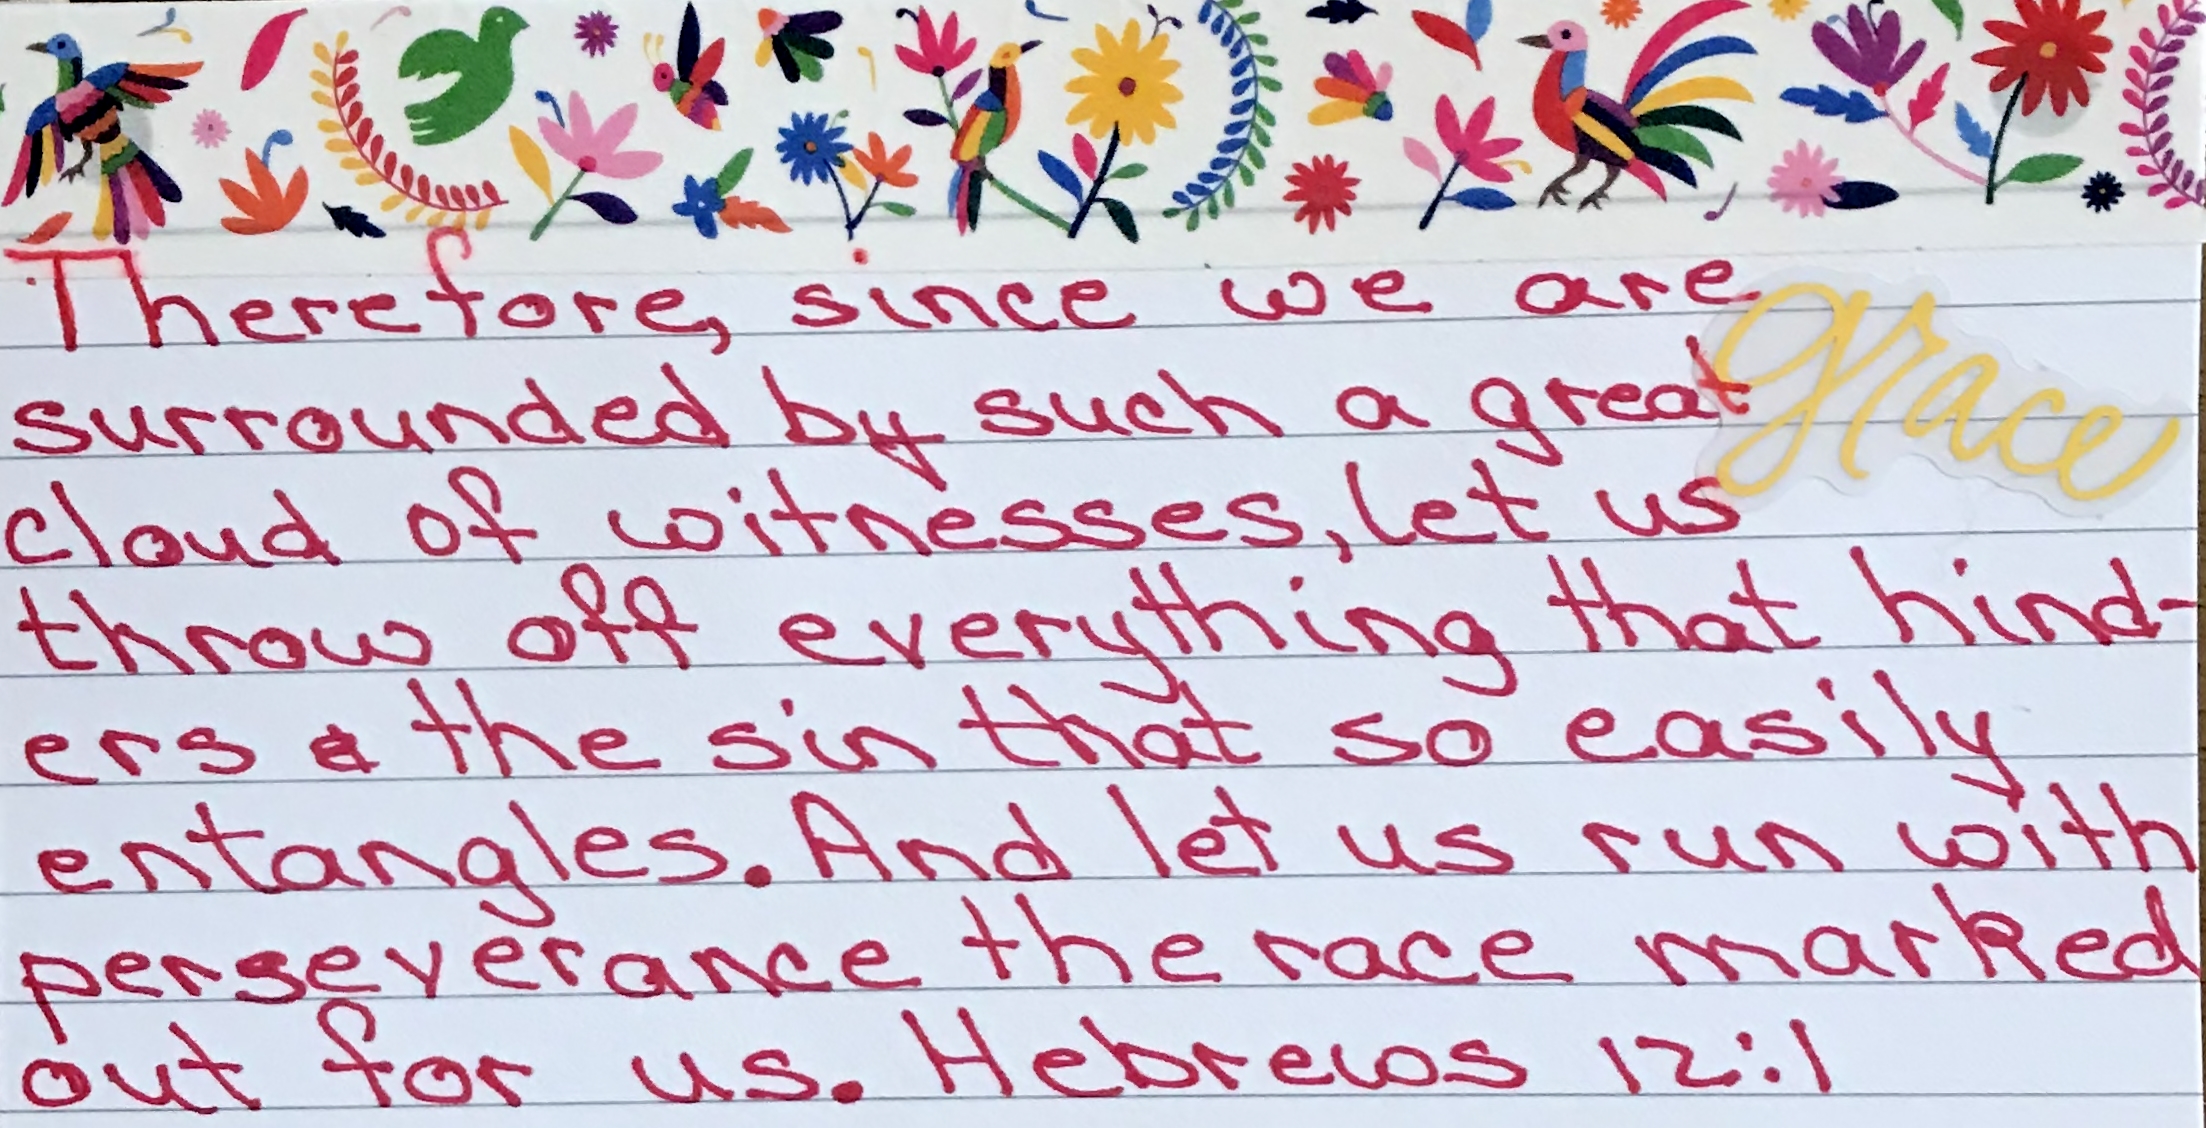 Therefore, since we are
grace
surrounded by such a great
cloud of witnesses, let us
throw off everything that hind-
ers & the sin that so easily
entangles. And let us run with
perseverance the race marked
out for us. Hebrews 12:1